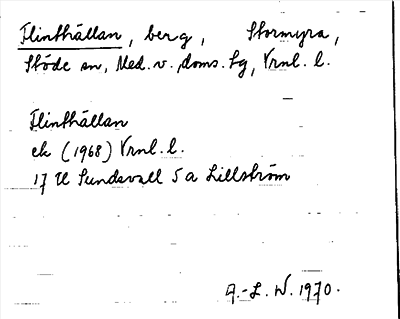 Flinthällan, berg, Stormyra,
Stöde sn, Med. v. doms. tg, Vrnl. l.
Flinthällan
ek (1968) Vrnl. l.
17 H Sundsvall 5 a Lillström
A.-L. W. 1970.